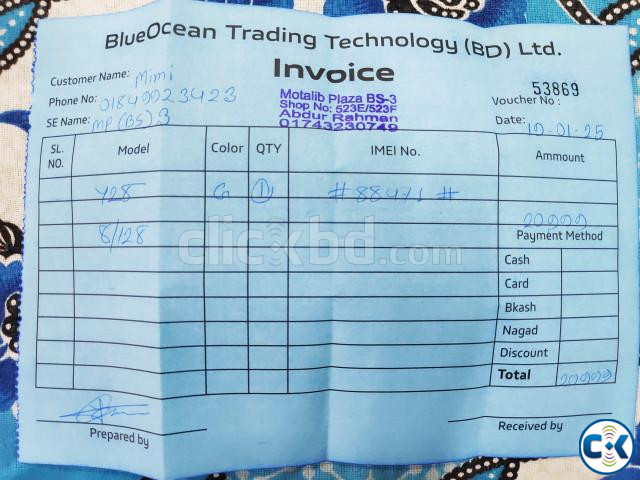 BlueOcean Trading Technology (BD) Ltd.
Invoice
Customer Name: Mimi
Phone No: 01849923423
SE Name: MP (BS) 3
Motalib Plaza BS-3
Shop No: 523E/523F
Abdur Rahman
01743230749
53869
Voucher No :
Date: 10-01-25
SL. NO. Model Color QTY IMEI No. Ammount
Y28 G 1 #88471#
20999
8/128
Payment Method
Cash
Card
Bkash
Nagad
Discount
Total 20999
Prepared by
Received by
clicxbd.com